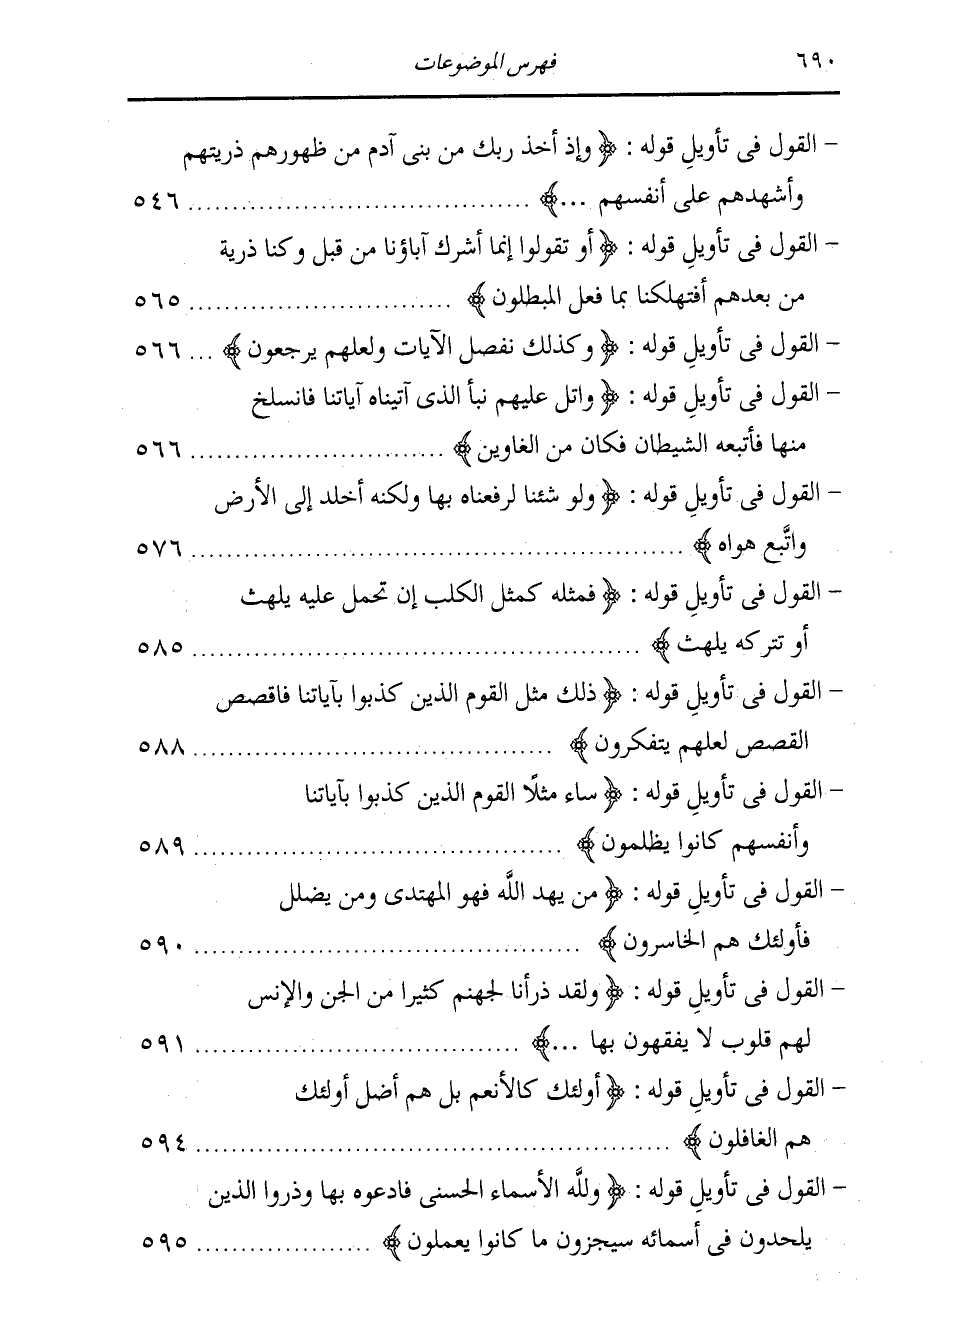 ٦٩٠ فهرس الموضوعات
- القول فى تأويلِ قوله : ﴿ وإذ أخذ ربك من بنى آدم من ظهورهم ذريتهم
وأشهدهم على أنفسهم ... ﴾ ...................................... ٥٤٦
- القول فى تأويلِ قوله : ﴿ أو تقولوا إنما أشرك آباؤنا من قبل وكنا ذرية
من بعدهم أفتهلكنا بما فعل المبطلون ﴾ .............................. ٥٦٥
- القول فى تأويلِ قوله : ﴿ وكذلك نفصل الآيات ولعلهم يرجعون ﴾ ... ٥٦٦
- القول فى تأويلِ قوله : ﴿ واتل عليهم نبأ الذى آتيناه آياتنا فانسلخ
منها فأتبعه الشيطان فكان من الغاوين ﴾ ............................. ٥٦٦
- القول فى تأويلِ قوله : ﴿ ولو شئنا لرفعناه بها ولكنه أخلد إلى الأرض
واتَّبع هواه ﴾ ....................................................... ٥٧٦
- القول فى تأويلِ قوله : ﴿ فمثله كمثل الكلب إن تحمل عليه يلهث
أو تتركه يلهث ﴾ .................................................. ٥٨٥
- القول فى تأويلِ قوله : ﴿ ذلك مثل القوم الذين كذبوا بآياتنا فاقصص
القصص لعلهم يتفكرون ﴾ ........................................ ٥٨٨
- القول فى تأويلِ قوله : ﴿ ساء مثلًا القوم الذين كذبوا بآياتنا
وأنفسهم كانوا يظلمون ﴾ ......................................... ٥٨٩
- القول فى تأويلِ قوله : ﴿ من يهد اللَّه فهو المهتدى ومن يضلل
فأولئك هم الخاسرون ﴾ ........................................... ٥٩٠
- القول فى تأويلِ قوله : ﴿ ولقد ذرأنا لجهنم كثيرا من الجن والإنس
لهم قلوب لا يفقهون بها ... ﴾ .................................... ٥٩١
- القول فى تأويلِ قوله : ﴿ أولئك كالأنعم بل هم أضل أولئك
هم الغافلون ﴾ ..................................................... ٥٩٤
- القول فى تأويلِ قوله : ﴿ وللَّه الأسماء الحسنى فادعوه بها وذروا الذين
يلحدون فى أسمائه سيجزون ما كانوا يعملون ﴾ .................... ٥٩٥